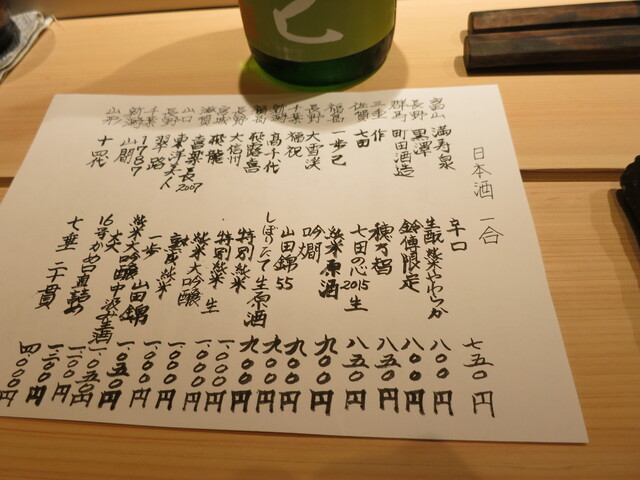 己
日本酒 一合
富山 満寿泉 辛口 七五〇円
長野 黒澤 生酛純米やわらか 八〇〇円
群馬 町田酒造 鈴傳限定 八〇〇円
三重 作 穂乃智 八五〇円
佐賀 七田 七田の心2015生 八五〇円
福島 一歩己 純米原酒 九〇〇円
長野 大雪渓 吟燗 九〇〇円
千葉 福祝 山田錦55 九〇〇円
新潟 高千代 しぼりたて生原酒 九〇〇円
福島 飛露喜 特別純米 九〇〇円
長野 大信州 特別純米 生 一、〇〇〇円
純米大吟醸 一、〇〇〇円
滋賀 喜楽長2007 熟成純米 一、〇〇〇円
山口 東洋美人 一歩 一、〇〇〇円
長野 翠露 純米大吟醸 山田錦 一、〇五〇円
千葉 1787 大吟醸中汲み生酒
新潟 山間 16号かめ口直詰め
山形 十四代 七垂二十貫 四、〇〇〇円